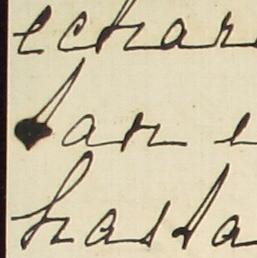 echar
tan e
hasta